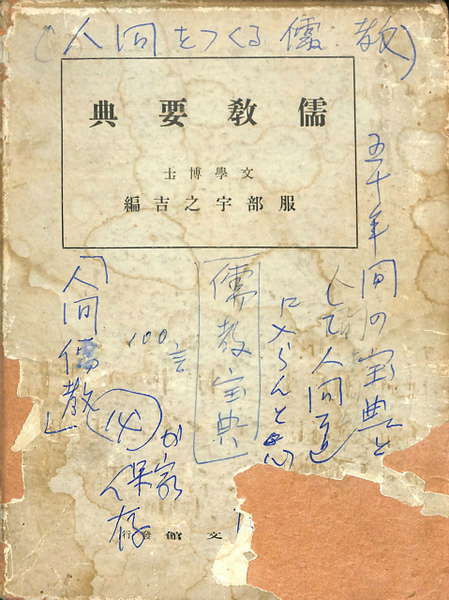 （人间をつくる儒教）
儒教要典
文學博士
服部宇之吉編
五十年间の宝典と
して人间道
に入らんと
「儒教宝典」
100言
「人间儒教」
14が
家
保存
文館發行